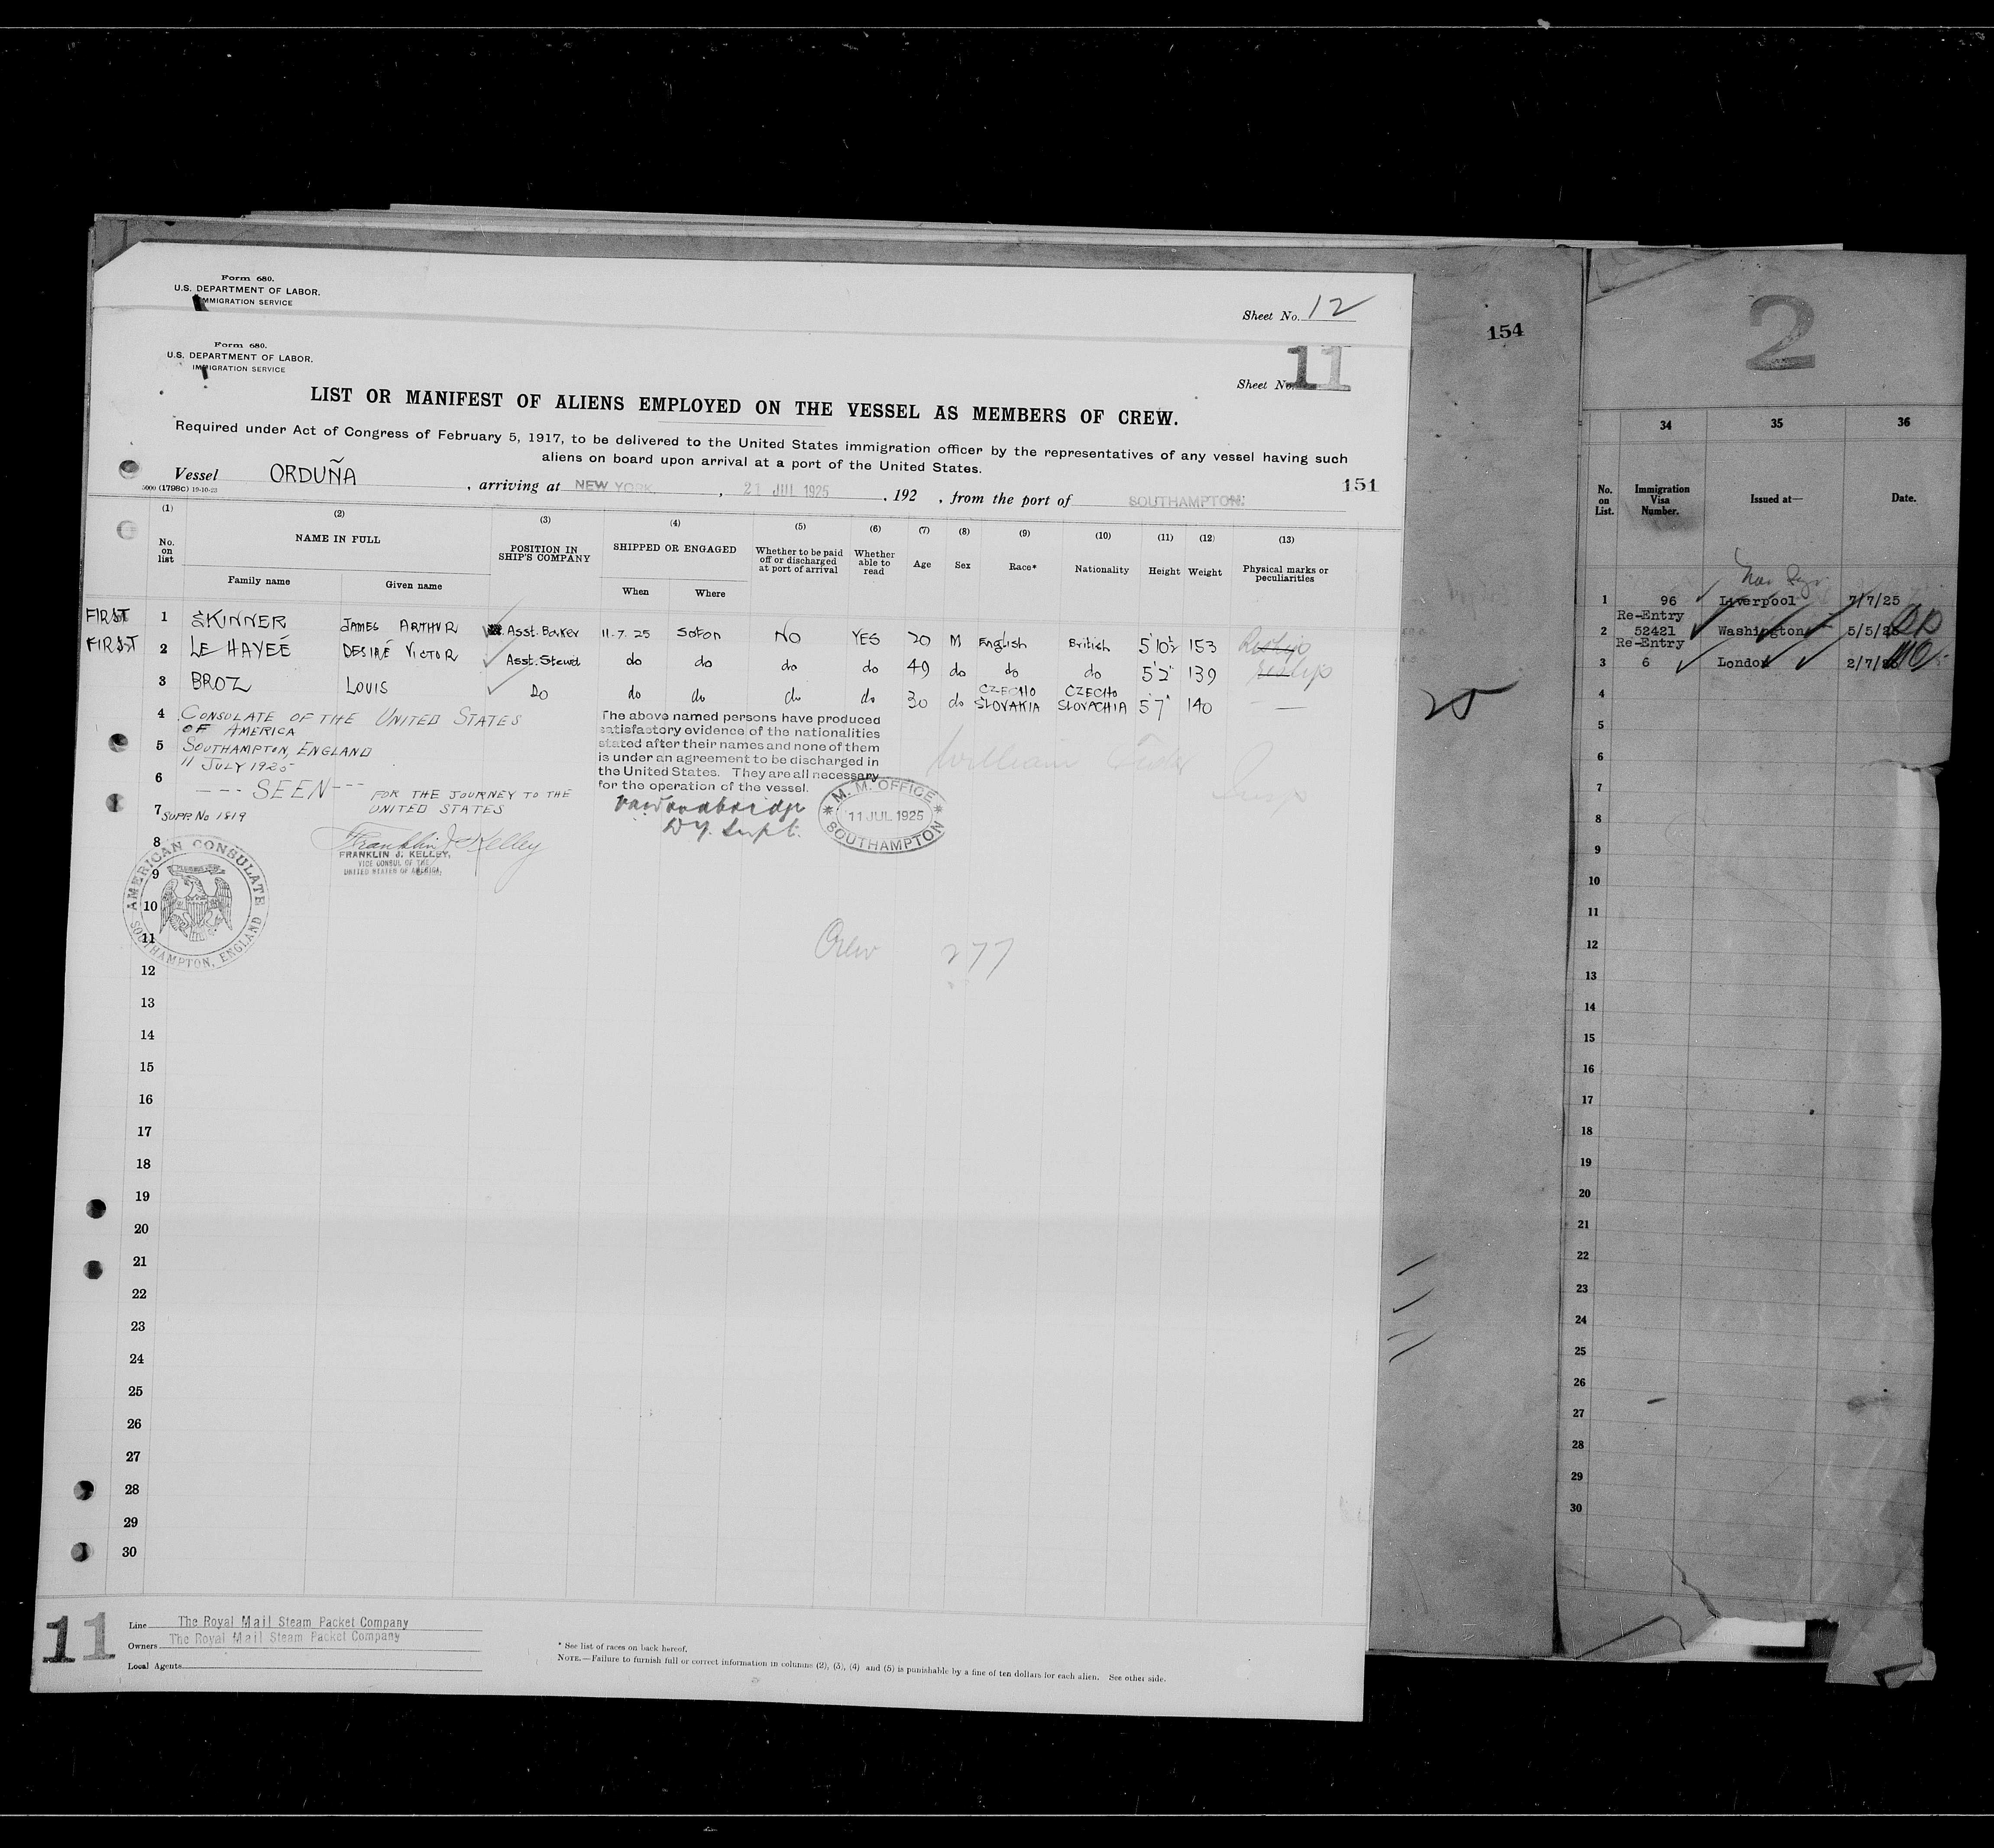 Form 680.
U.S. DEPARTMENT OF LABOR.
IMMIGRATION SERVICE
Sheet No. 12
Form 680.
U.S. DEPARTMENT OF LABOR.
IMMIGRATION SERVICE
Sheet No. 11
LIST OR MANIFEST OF ALIENS EMPLOYED ON THE VESSEL AS MEMBERS OF CREW.
Required under Act of Congress of February 5, 1917, to be delivered to the United States immigration officer by the representatives of any vessel having such
aliens on board upon arrival at a port of the United States.
Vessel ORDUÑA , arriving at NEW YORK , 21 JUL 1925 , 192 , from the port of SOUTHAMPTON.
5000 (1798C) 19-10-23
151
(1) (2) (3) (4) (5) (6) (7) (8) (9) (10) (11) (12) (13)
No. on list NAME IN FULL Family name Given name POSITION IN SHIP'S COMPANY SHIPPED OR ENGAGED When Where Whether to be paid off or discharged at port of arrival Whether able to read Age Sex Race* Nationality Height Weight Physical marks or peculiarities
FIRST 1 SKINNER JAMES ARTHUR Asst. Barker 11.7.25 Soton NO YES 20 M English British 5'10½ 153
FIRST 2 LE HAYEÉ DESIRÉ VICTOR Asst. Stewd do do do do 49 do do do 5'2" 139
3 BROZ LOUIS Do do do do do 30 do CZECHO SLOVAKIA CZECHO SLOVACHIA 5'7" 140 — —
4 CONSULATE OF THE UNITED STATES
OF AMERICA
5 SOUTHAMPTON, ENGLAND
11 JULY 1925
6 --- SEEN --- FOR THE JOURNEY TO THE
UNITED STATES
7 SUPP. No 1819
The above named persons have produced
satisfactory evidence of the nationalities
stated after their names and none of them
is under an agreement to be discharged in
the United States. They are all necessary
for the operation of the vessel.
Dy. Supt.
M. M. OFFICE
11 JUL 1925
SOUTHAMPTON
William
Insp
8 Franklin J. Kelley
FRANKLIN J. KELLEY,
VICE CONSUL OF THE
UNITED STATES OF AMERICA.
AMERICAN CONSULATE
SOUTHAMPTON, ENGLAND
9
10
11
Crew 277
12
13
14
15
16
17
18
19
20
21
22
23
24
25
26
27
28
29
30
11
Line The Royal Mail Steam Packet Company
Owners The Royal Mail Steam Packet Company
Local Agents
* See list of races on back hereof.
NOTE.—Failure to furnish full or correct information in columns (2), (3), (4) and (5) is punishable by a fine of ten dollars for each alien. See other side.
154
25
2
34 35 36
No. on List. Immigration Visa Number. Issued at— Date.
1 96 Liverpool 7/7/25
Re-Entry
2 52421 Washington 5/5/25
Re-Entry
3 6 London 2/7/25
4
5
6
7
8
9
10
11
12
13
14
15
16
17
18
19
20
21
22
23
24
25
26
27
28
29
30